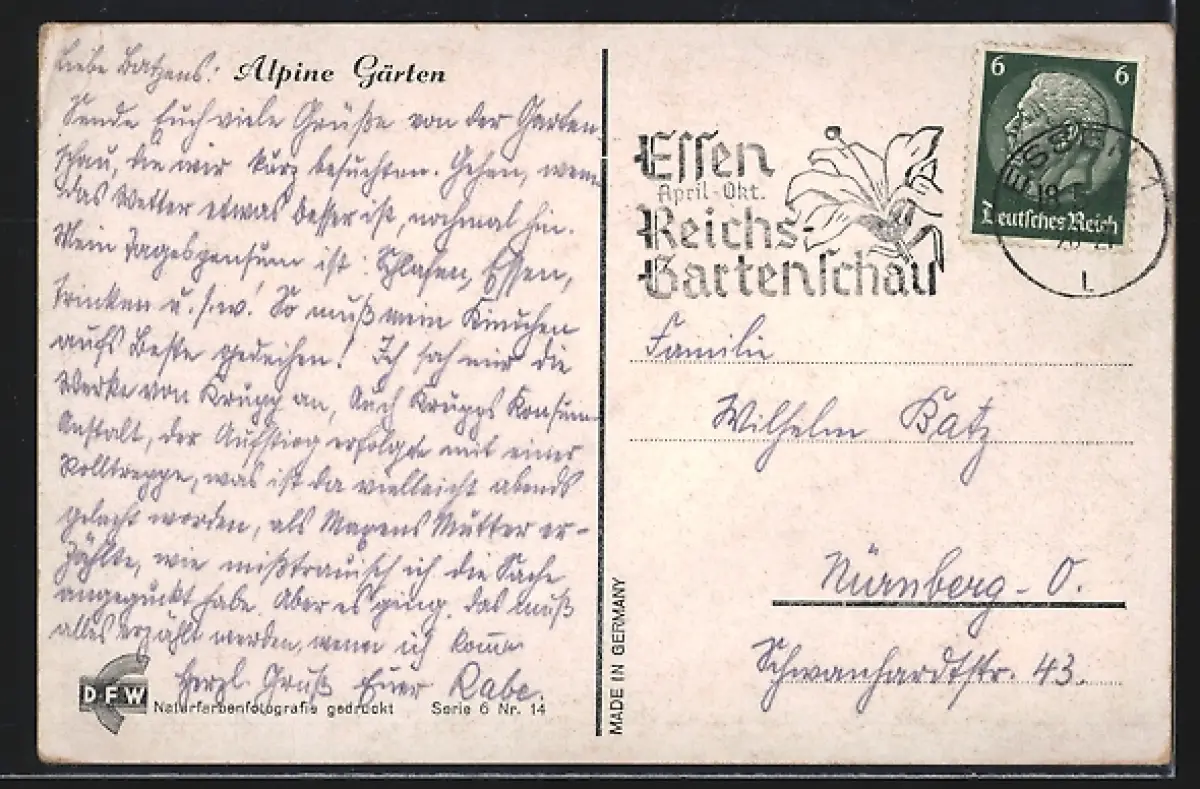 Liebe Batzens!
Alpine Gärten
Sende Euch viele Grüße von der Garten-
schau, die wir kurz besuchten. Gehen, wenn
das Wetter etwas besser ist, nochmal hin.
Mein Tagespensum ist: Schlafen, Essen,
Trinken u.s.w.! So muß mein
aufs Beste gedeihen! Ich sah mir die
Werke von Krupp an, Auch Krupps Konsum-
Anstalt, der Aufstieg erfolgte mit einer
Rolltreppe, was ist da vielleicht abends
gelacht worden, als Mutter er-
zählte, wie mißtrauisch ich die Sache
angeguckt habe. Aber es ging. das muß
alles erzählt werden, wenn ich komme
Herzl. Gruß Euer Rabe.
DFW
Naturfarbenfotografie gedruckt Serie 6 Nr. 14
MADE IN GERMANY
Essen
April-Okt.
Reichs-
Gartenschau
6 6
Deutsches Reich
ESSEN 1
Familie
Wilhelm Batz
Nürnberg-O.
Schwanhardtstr. 43.